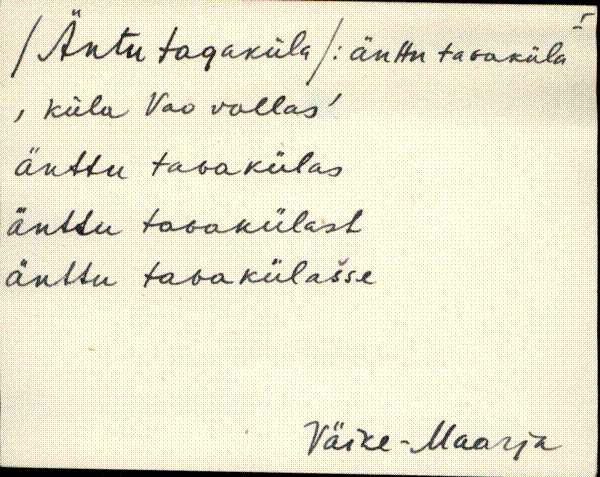 I
/Äntu tagaküla/: änttu tavaküla
, küla Vao vallas'
änttu tavakülas
änttu tavakülast
änttu tavakülasse
Väike-Maarja